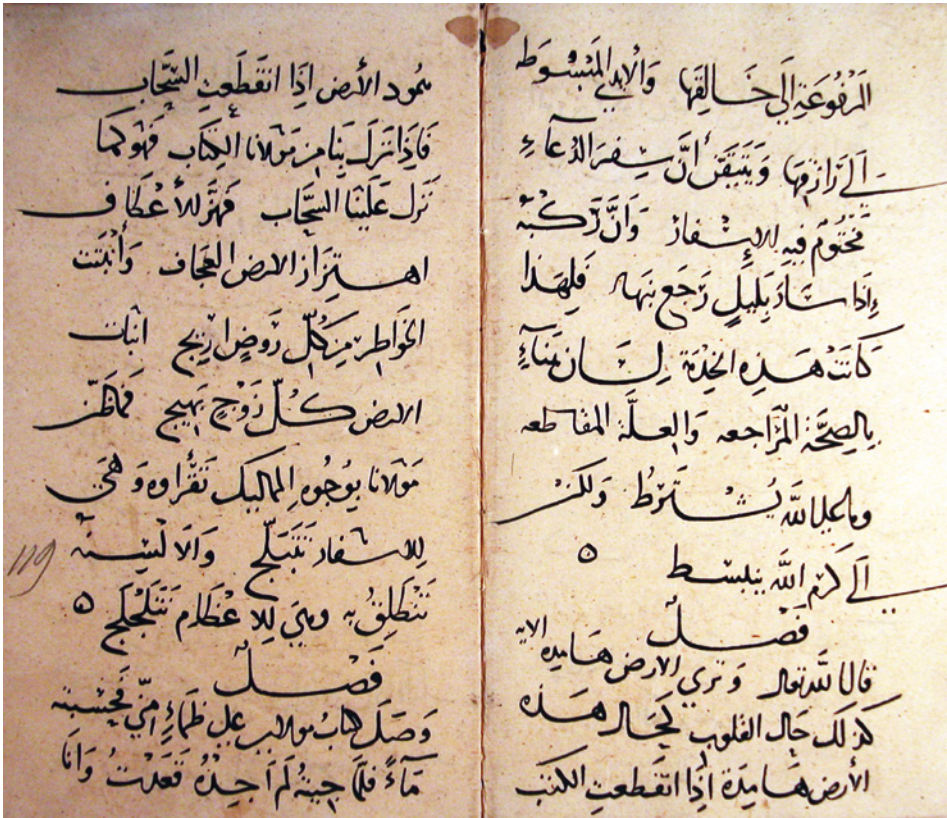 المرفوعة إلى خالقها والأيدي المبسوطة
إلى رازقها ويتيقن أن سفر الدعاء
مختوم فيه للإسفار وأن ركبه
إذا سار بليل رجع بنهار فلهذا
كانت هذه الخدمة لسان
بالصحة المراجعه والعلة المقاطعه
وما على الله يشترط ولكن
إلى كرم الله ينبسط ه
فصل
قال الله تعالى وترى الأرض هامدة الايه
كذلك حال القلوب كحال هذه
الأرض هامدة إذا انقطعت الكتب
همود الأرض إذا انقطعت السحاب
فإذا نزل بنا من مولانا الكتاب فهو كما
نزل علينا السحاب فهز للأعطاف
اهتزاز الارض العجاف وأنبتت
الخواطر من كل روض اريج انبات
الارض كل زوج بهيج فما ظن
مولانا بوجوه المماليك تقرأوه وهي
للاسفار تتبلج وألا لسنه
تنطلق به وهي للاعظام تتلجلج ه
فصل
وصل كتاب مولاي على ظماء مني فحسبته
ماء فلما جيته لم اجده فعدت وأنا
119